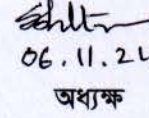 06.11.21
অধ্যক্ষ